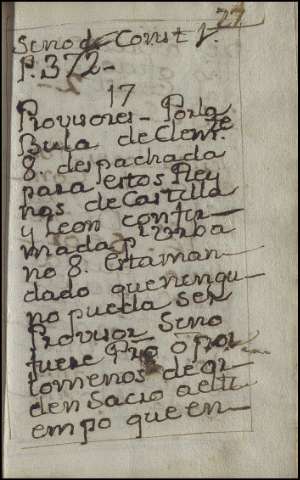 27
Sino de Const f.
P. 372-
17
Provisores - Porla
Bula de Clemte
8. despachada
para estos Rey
nos de Castilla
y Leon confir-
mada pr Urba
no 8. esta man
dado quenengu-
no pueda ser
Provisor Sino
fuere Pro o por
lomenos de or
den Sacro aelti
empo que en-